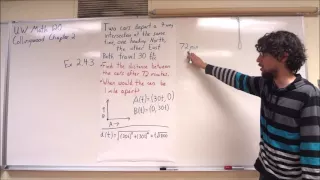 UW Math 120
Collingwood Chapter 2
Ex 2.4.3
Two cars depart a 4 way
intersection at the same
time, one heading North,
the other East
Both travel 30 ft/s
Find the distance between
the cars after 72 minutes.
When would the cars be
1 mile apart?
A(t)=(30t, 0)
B(t)=(0, 30t)
A →
d(t)=√(30t)²+(30t)²
72